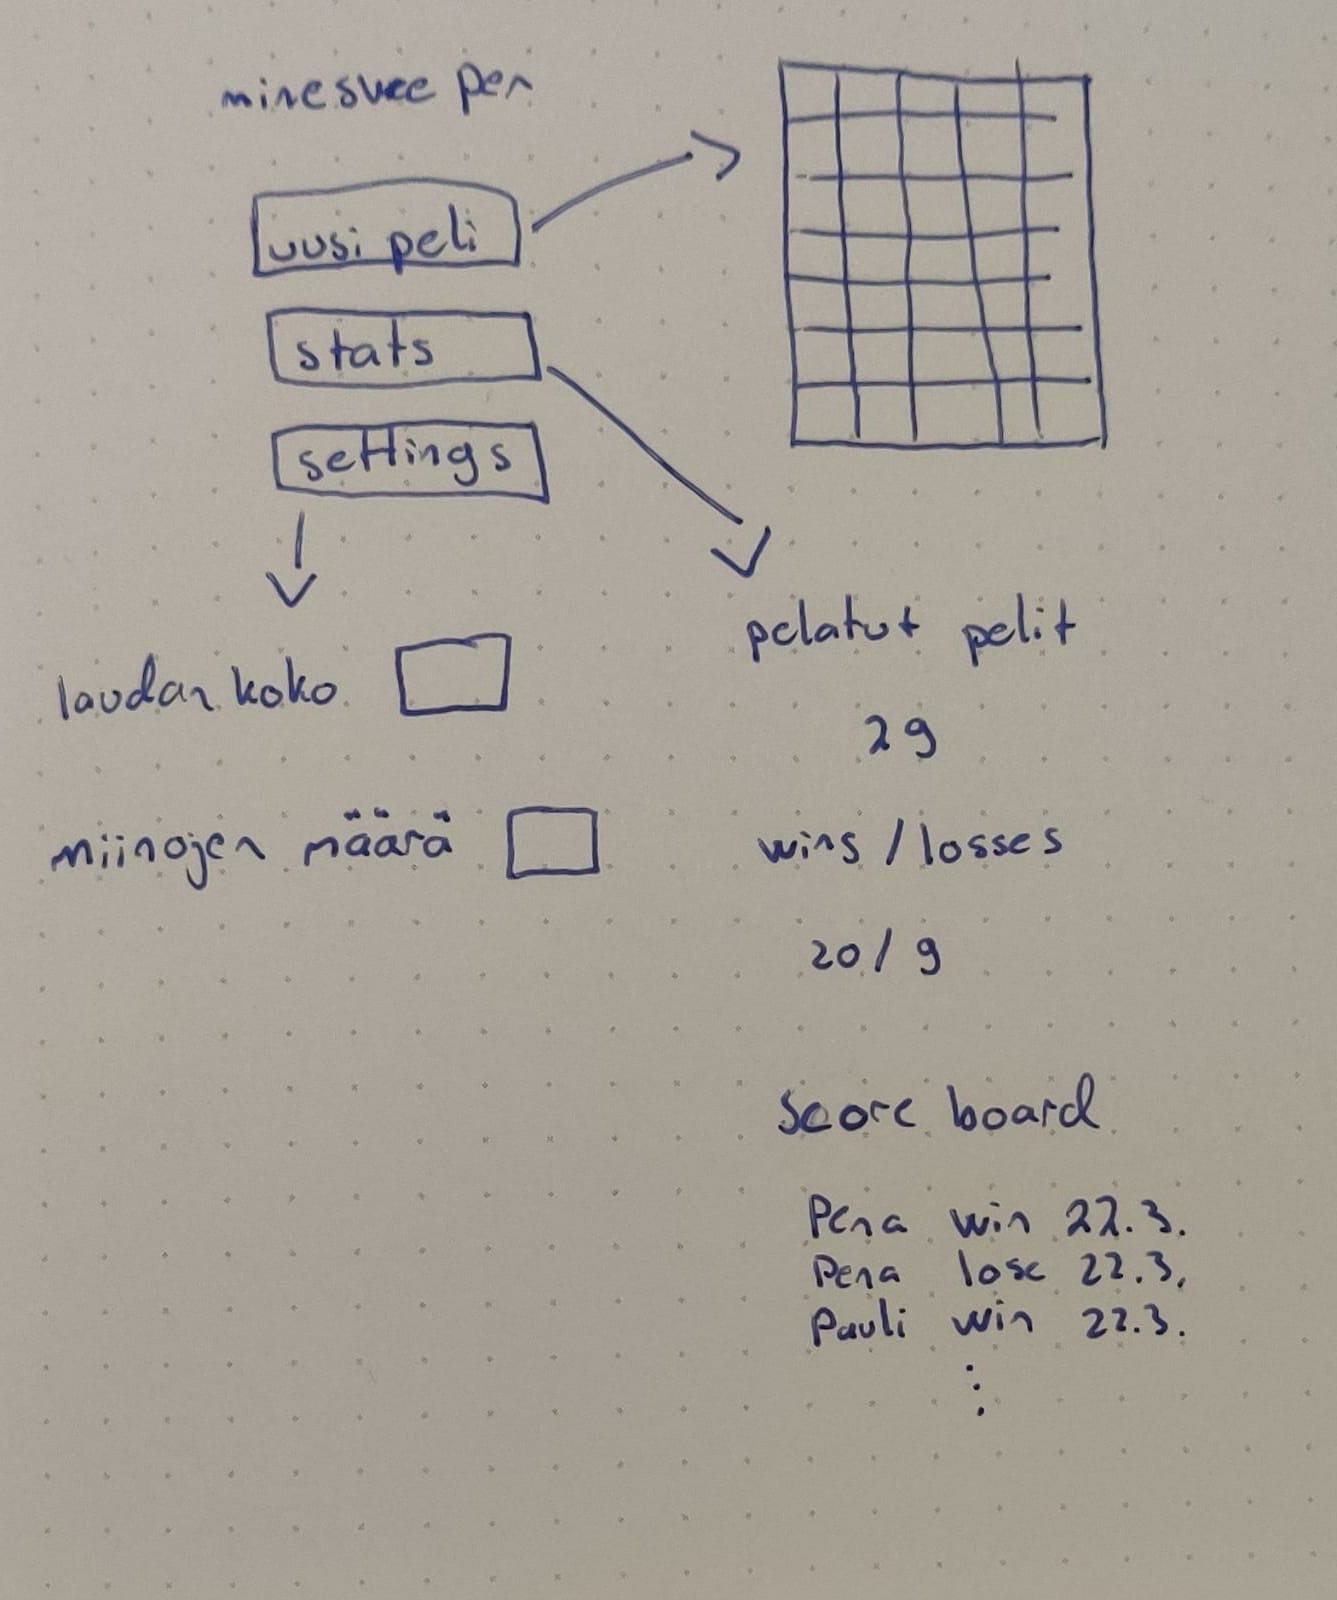 minesveeper
uusi peli
stats
settings
laudan koko
miinojen määrä
pelatut pelit
29
wins/losses
20/9
Score board
Pena win 22.3.
Pena lose 22.3.
Pauli win 22.3.
⋮